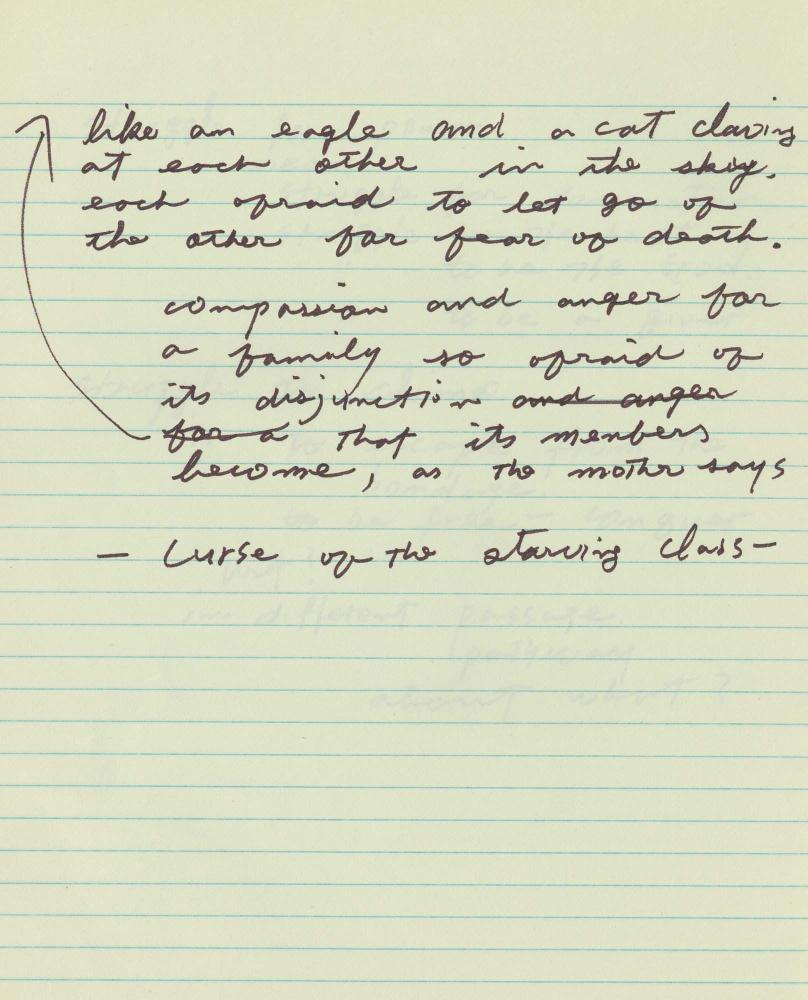 like an eagle and a cat clawing
at each other in the sky,
each afraid to let go of
the other for fear of death.
compassion and anger for
a family so afraid of
its disjunction and anger
for a that its members
become, as the mother says
— Curse of the starving class —
in different passage
about what?